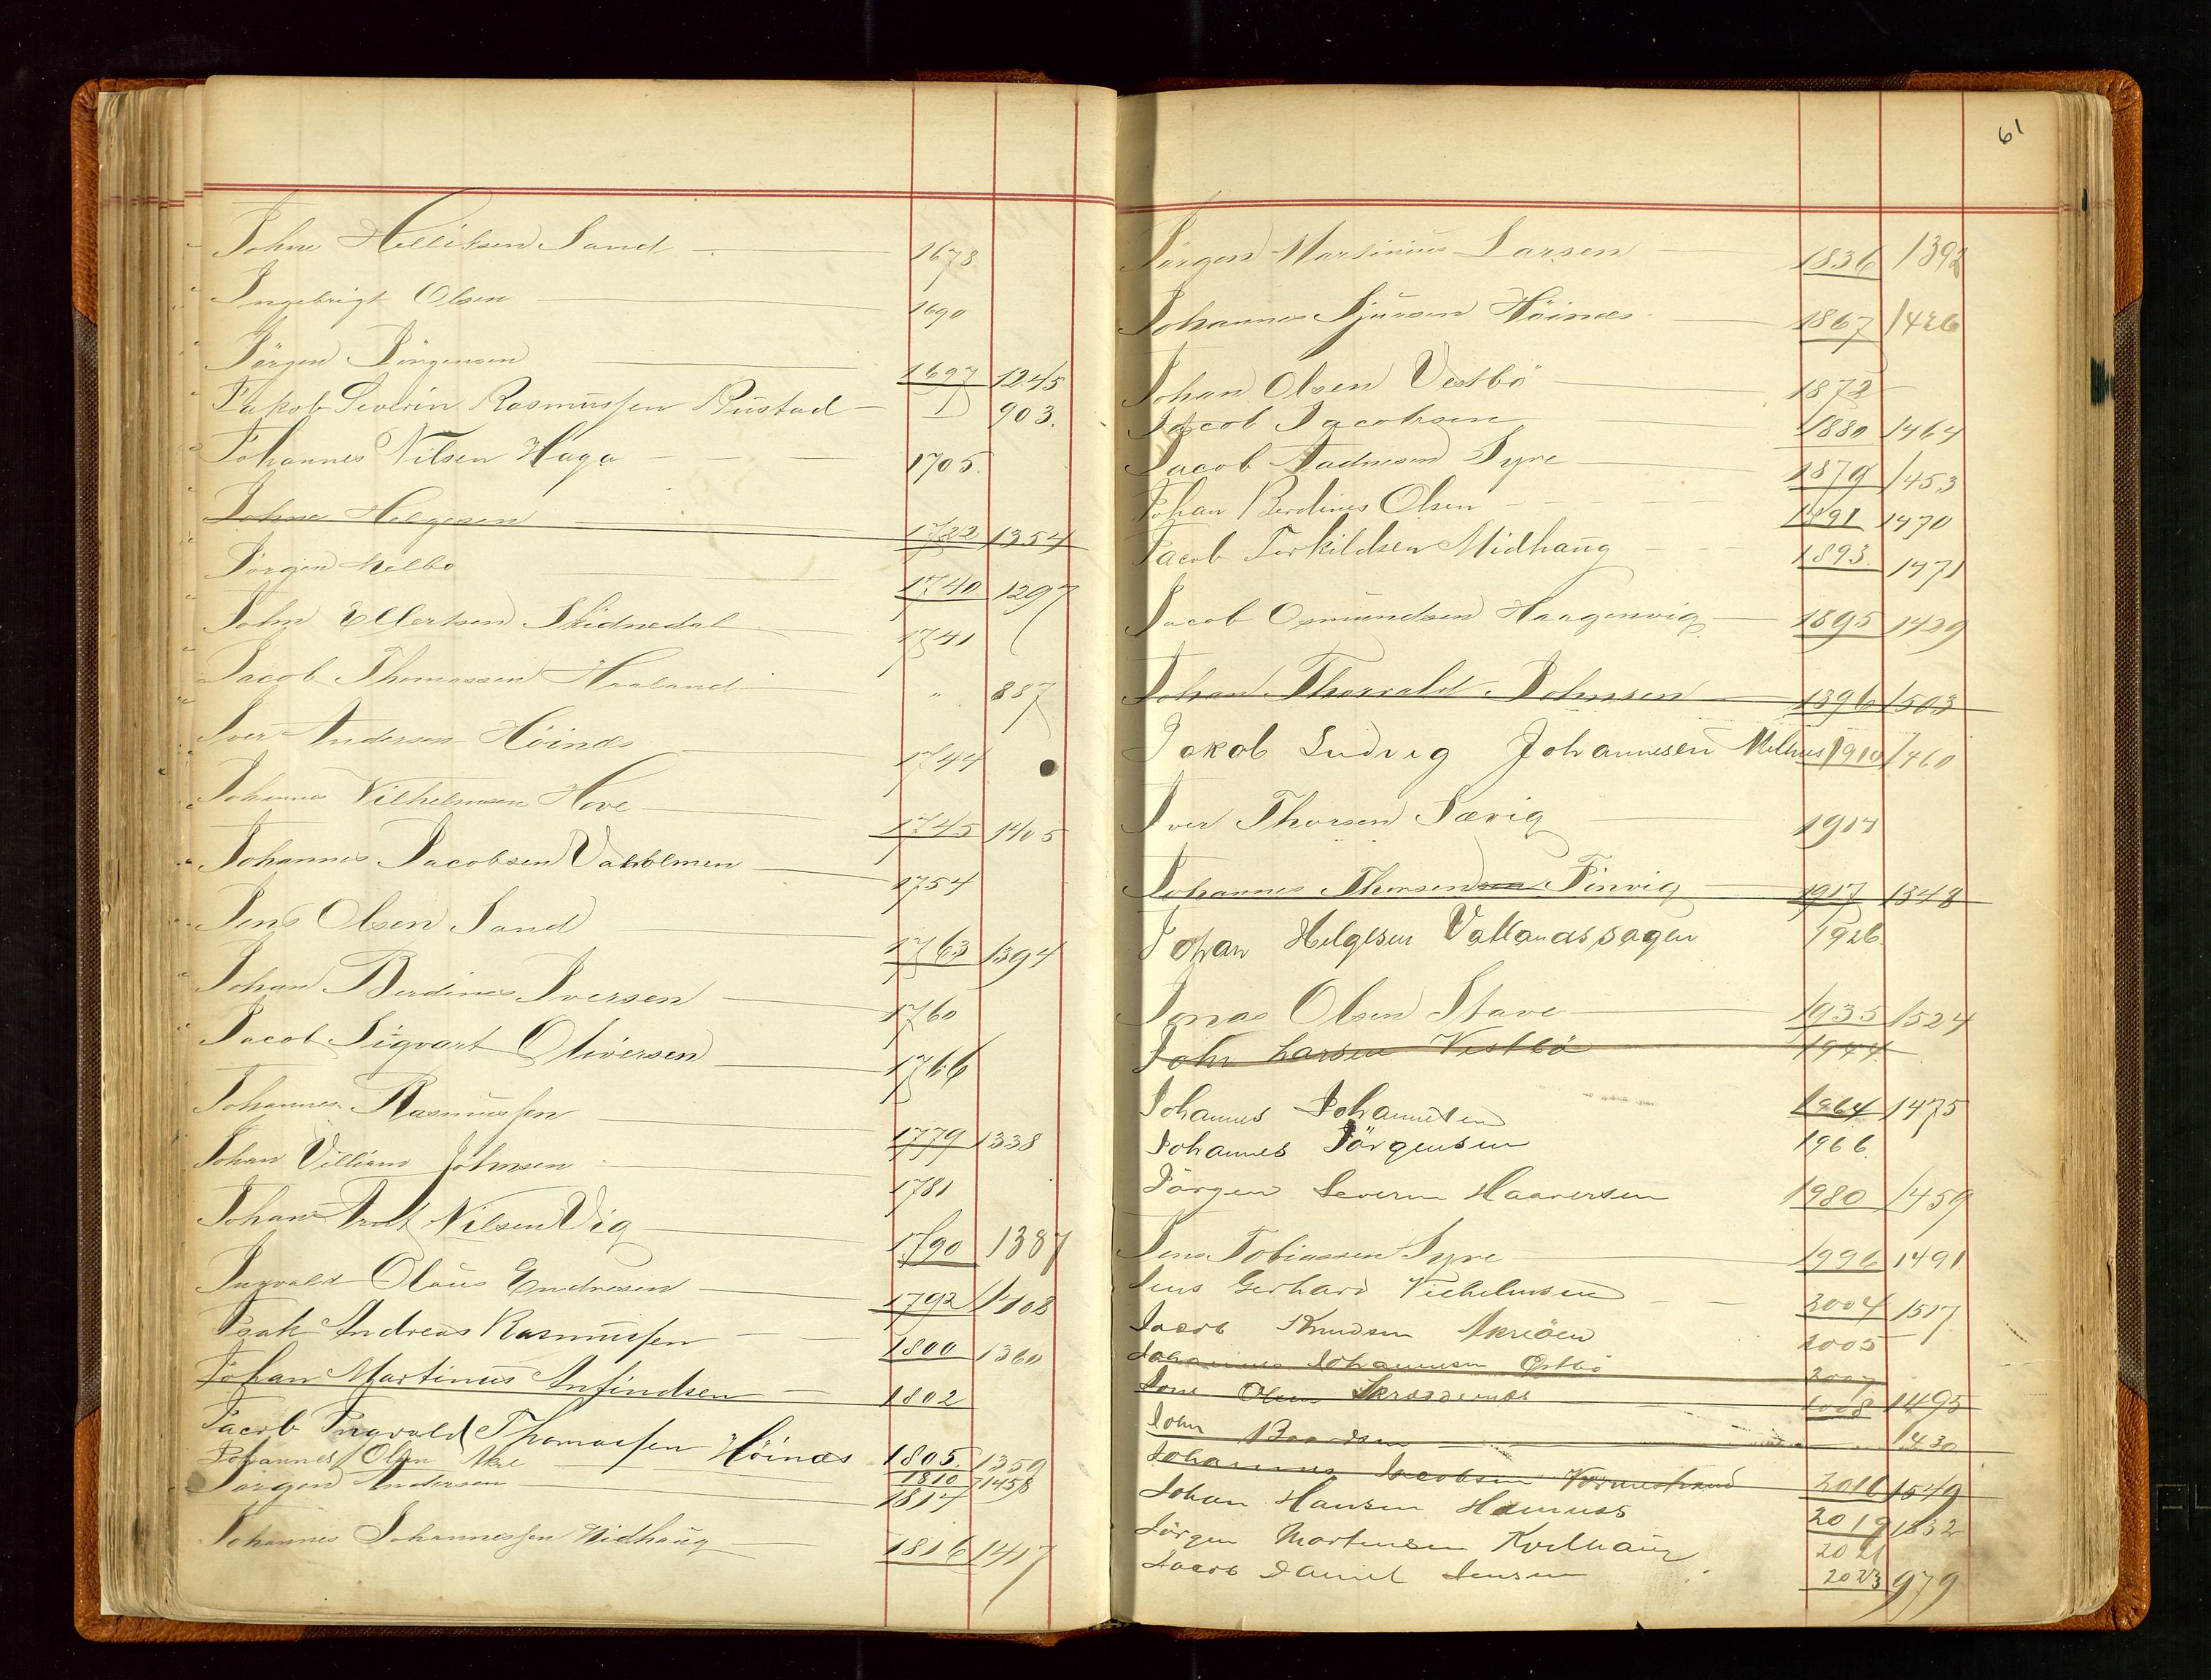 Johne Helliksen Sand 1678
Ingebrigt Olsen 1690
Jörgen Jörgensen 1697 1245
Jakob Severin Rasmussen Rustad 903.
Johannes Nilsen Haga 1705.
Johne Helgesen 1722 1354
Jörgen Melbo 1740 1297
John Ellertsen Skidnedal 1741
Jacob Thomassen Haaland " 887
Iver Andersen Höinæs 1744
Johannes Vilhelmsen Hove 1745 1405
Johannes Jacobsen 1754
Jens Olsen Sand 1763 1394
Johan Berdines Iversen 1760
Jacob Sigvart Oliversen 1766
Johannes Rasmussen 1779 1338
Johan Villiam Johnsen 1781
Johan Arnt Nilsen Vig 1790 1387
Ingvald Olaus Endresen 1792 1408
Isak Andreas Rasmussen 1800 1360
Johan Martinus Anfindsen 1802
Jacob Ingvald Thomassen Höinæs 1805. 1359
Johannes Olsen Akre 1810 1458
Jörgen Andersen 1814
Johannes Johannessen Midhaug 1816 1417
61
Jörgen Martinius Larsen 1836 1392
Johannes Sjursen Höinæs 1867 1426
Johan Olsen Vestbö 1872
Jacob Jacobsen 1880 1464
Jacob Aadnesen Syre 1879 1453
Johan Berdines Olsen 1891 1470
Jacob Torkildsen Midhaug 1893. 1471
Jacob Osmundsen Haagenvig 1895 1429
Johan Thorvald Johnsen 1896 1503
Jakob Ludvig Johannesen Melhus 1910 1460
Iver Thorsen Sævig 1914
Johannes Thorsen Tinvig 1917 1348
Johan Helgesen Vallandsskogen 1926.
Jonas Olsen Stave 1935 1524
John Larsen Vestbö 1944.
Johannes Johannesen 1964 1475
Johannes Jörgensen 1966.
Jörgen Severin Haaversen 1980 1459
Jens Tobiassen Syre 1996 1491
Jens Gerhard Vilhelmsen 2004 1517
Jacob Knudsen Akreöen 2005
Johannes Johannesen Östbö 2007
Jone Olsen 2008 1495
John Baardsen 1430
Johannes Jacobsen Vormestrand 2016 1549
Johan Hansen 2019 1532
Jörgen Mortensen Kvilhaug 2021
Jacob Daniel Jensen 2023 979